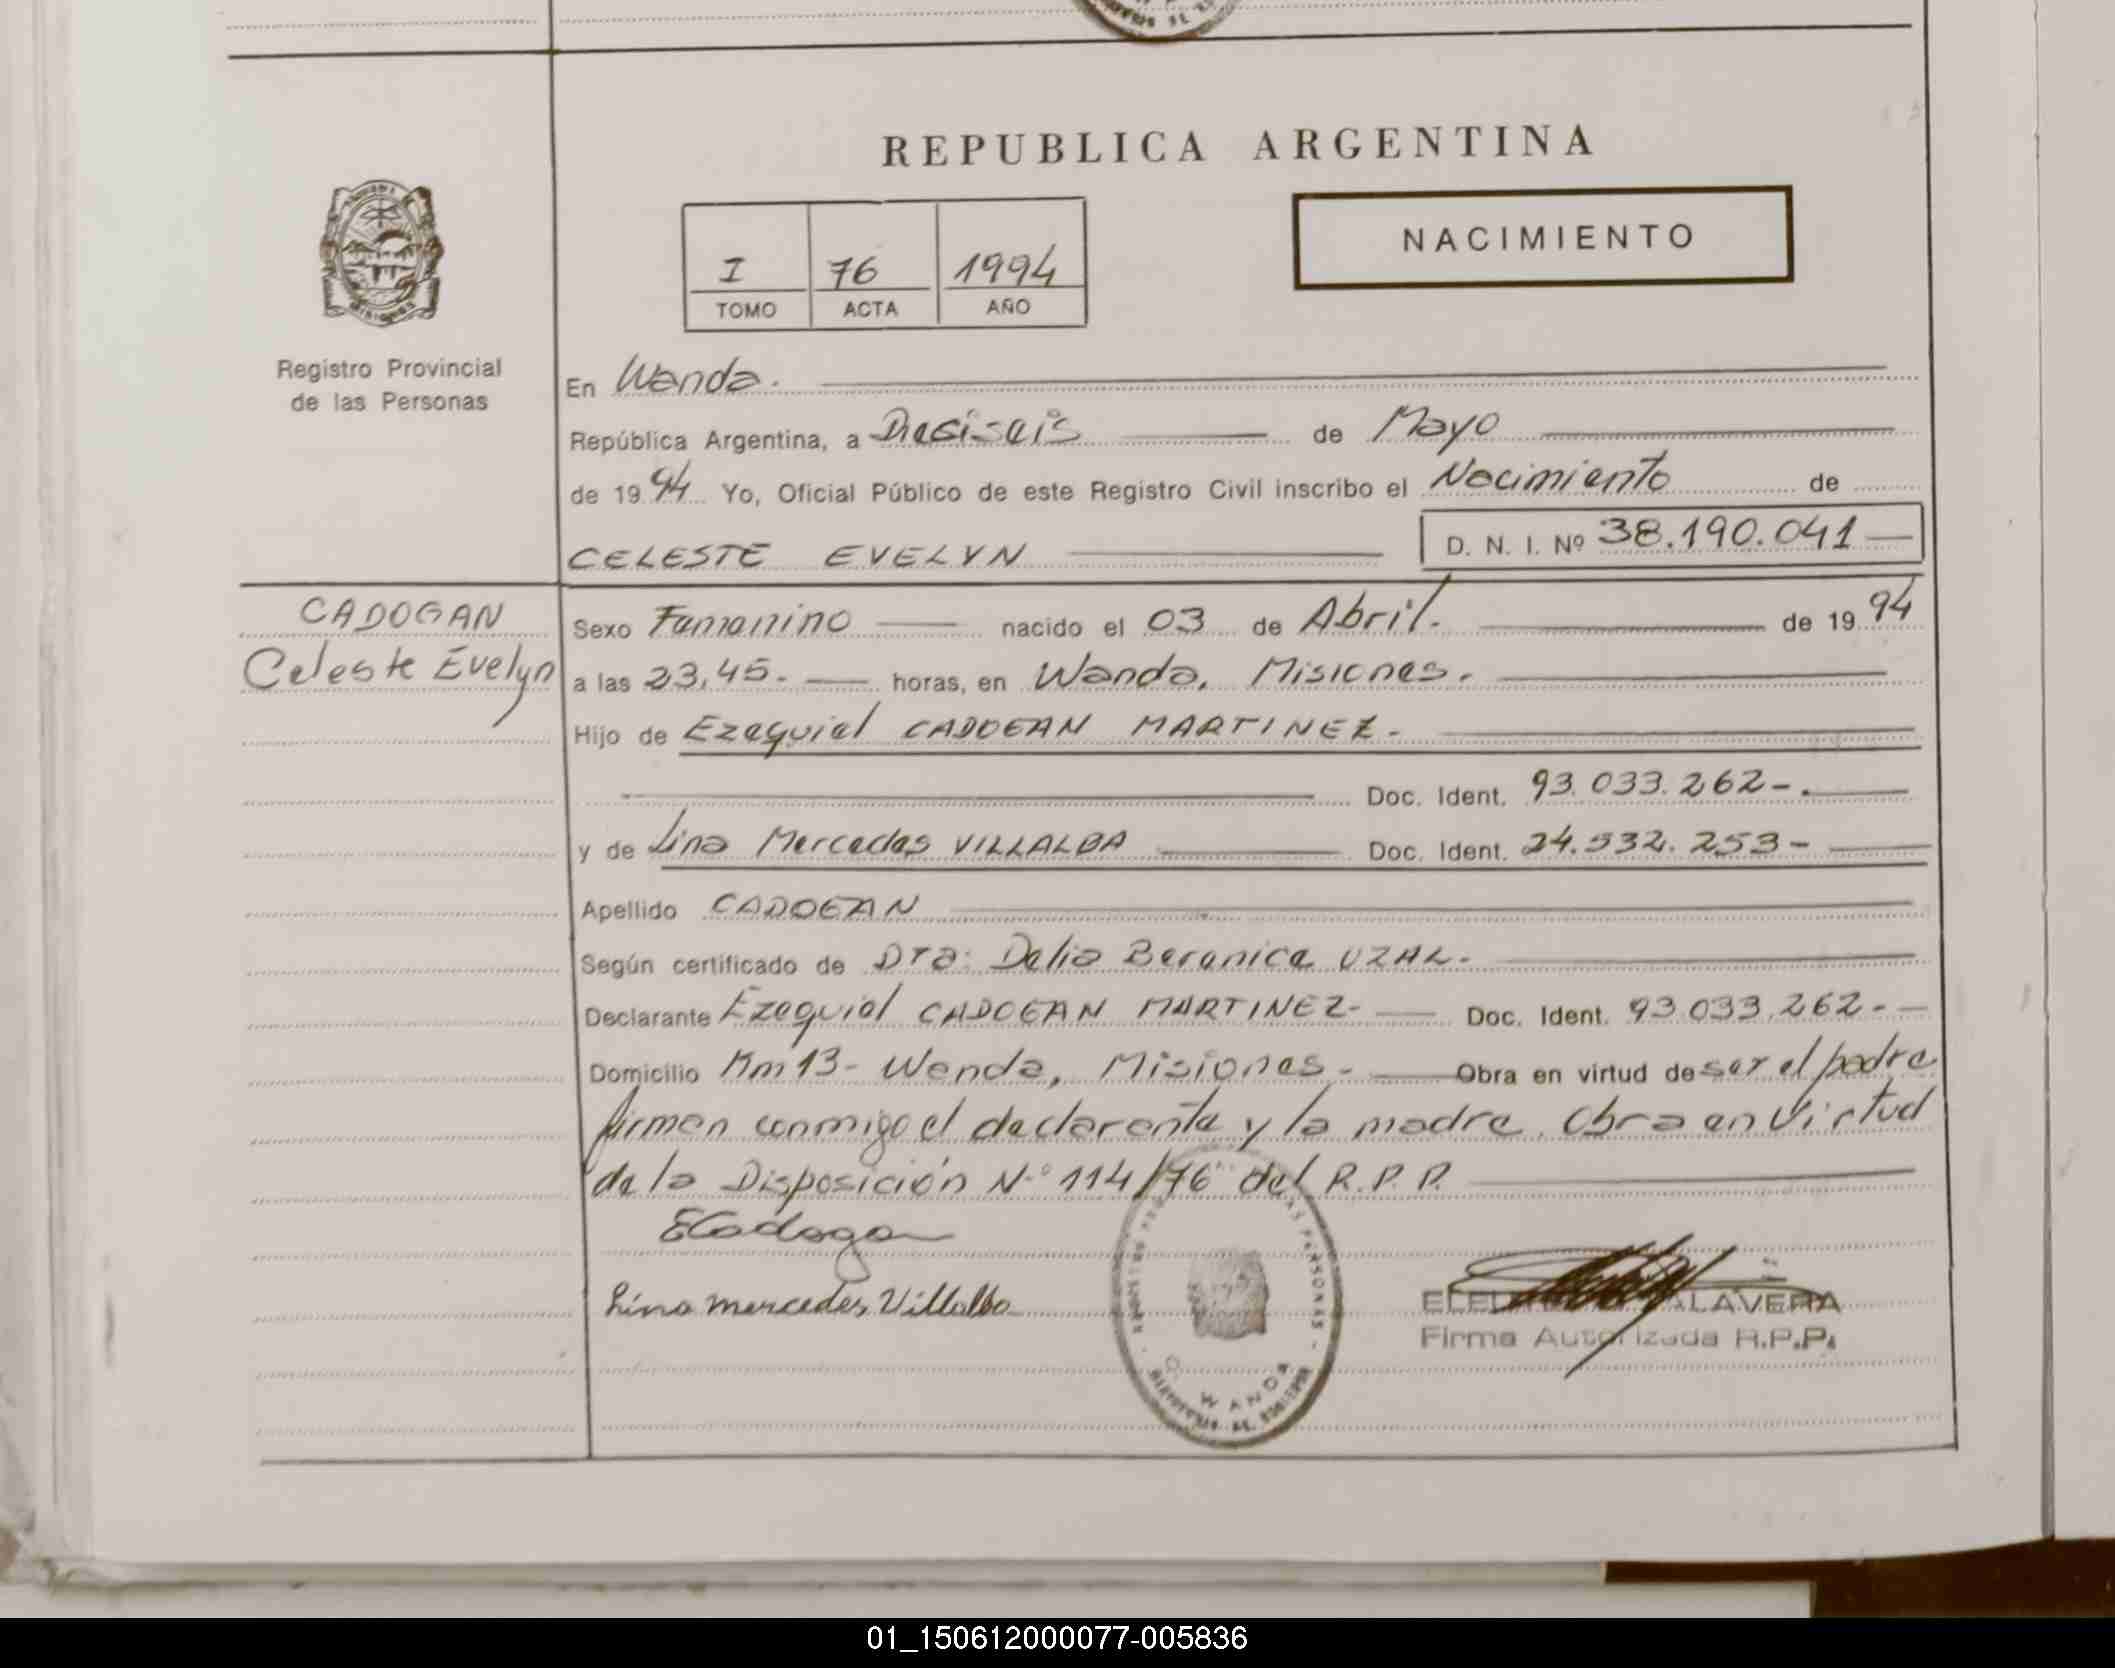 REPUBLICA ARGENTINA
NACIMIENTO
I 76 1994
TOMO ACTA AÑO
Registro Provincial
de las Personas
En Wanda.
República Argentina, a Dieciseis de Mayo
de 1994 Yo, Oficial Público de este Registro Civil inscribo el Nacimiento de
CELESTE EVELYN D. N. I. Nº 38.190.041
CADOGAN
Celeste Evelyn
Sexo Femenino nacido el 03 de Abril. de 1994
a las 23,45.- horas, en Wanda, Misiones.
Hijo de Ezequiel CADOGAN MARTINEZ-
Doc. Ident. 93.033.262-.
y de Lina Mercedes VILLALBA Doc. Ident. 24.532.253-
Apellido CADOGAN
Según certificado de Dra: Delia Berenice UZAL.
Declarante Ezequiel CADOGAN MARTINEZ- Doc. Ident. 93.033.262-
Domicilio Km 13- Wanda, Misiones- Obra en virtud de ser el padre
firman conmigo el declarante y la madre. Obra en Virtud
de la Disposición Nº 114/76 del R.P.P.
ECadogan
Lina Mercedes Villalba
WANDA
LAVERA
Firma Autorizada R.P.P.
01_150612000077-005836